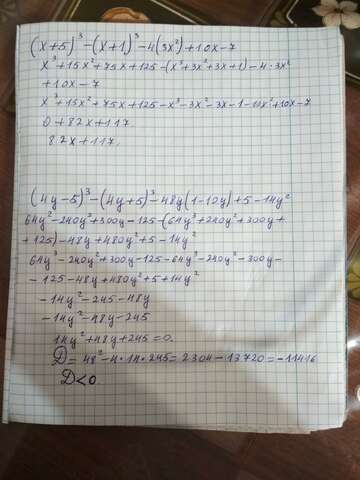 (x+5)³-(x+1)³-4(3x²)+10x-7
x³+15x²+75x+125-(x³+3x²+3x+1)-4·3x²
+10x-7
x³+15x²+75x+125-x³-3x²-3x-1-12x²+10x-7
0+82x+117
82x+117.
(4y-5)³-(4y+5)³-48y(1-10y)+5-14y²
64y³-240y²+300y-125-(64y³+240y²+300y+
+125)-48y+480y²+5-14y²
64y³-240y²+300y-125-64y³-240y²-300y-
-125-48y+480y²+5+14y²
-14y²-245-48y
-14y²-48y-245
14y²+48y+245=0.
D=48²-4·14·245=2304-13720=-11416
D<0.